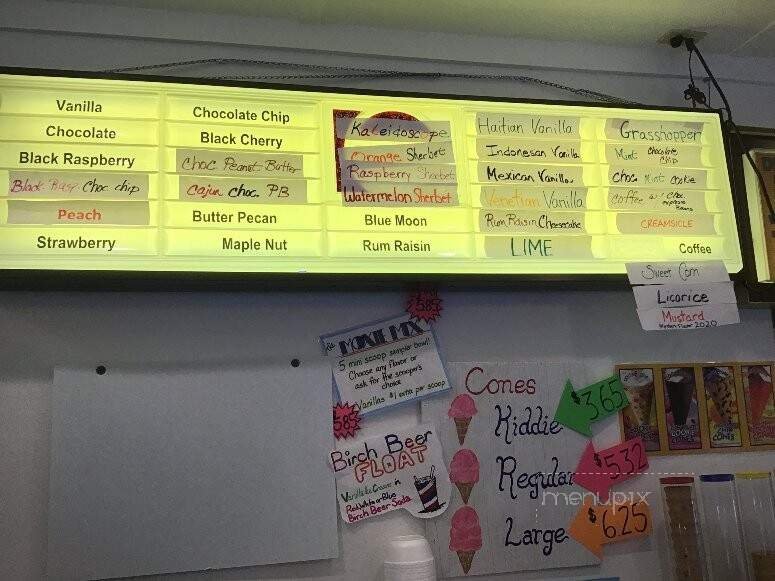 Vanilla
Chocolate
Black Raspberry
Black Rasp. Choc chip
Peach
Strawberry
Chocolate Chip
Black Cherry
Choc. Peanut Butter
Cajun choc. PB
Butter Pecan
Maple Nut
Kaleidoscope
Orange Sherbet
Raspberry Sherbet
Watermelon Sherbet
Blue Moon
Rum Raisin
Haitian Vanilla
Indonesan Vanilla
Mexican Vanilla
Venetian Vanilla
Rum Raisin Cheesecake
LIME
Grasshopper
Mint Chocolate Chip
Choc Mint Cookie
Coffee w/ choc. espresso Beans
CREAMSICLE
Coffee
Sweet Corn
Licorice
Mustard
Flavor 2020
585
MOXIE MIX
5 mini scoop sampler bowl!
Choose any flavor or
ask for the scooper's
choice
Vanillas $1 extra per scoop
585
Birch Beer
FLOAT
Vanilla Ice Cream in
Red, White or Blue
Birch Beer Soda
Cones
Kiddie
$365
Regular
$532
Large
$625
menupix